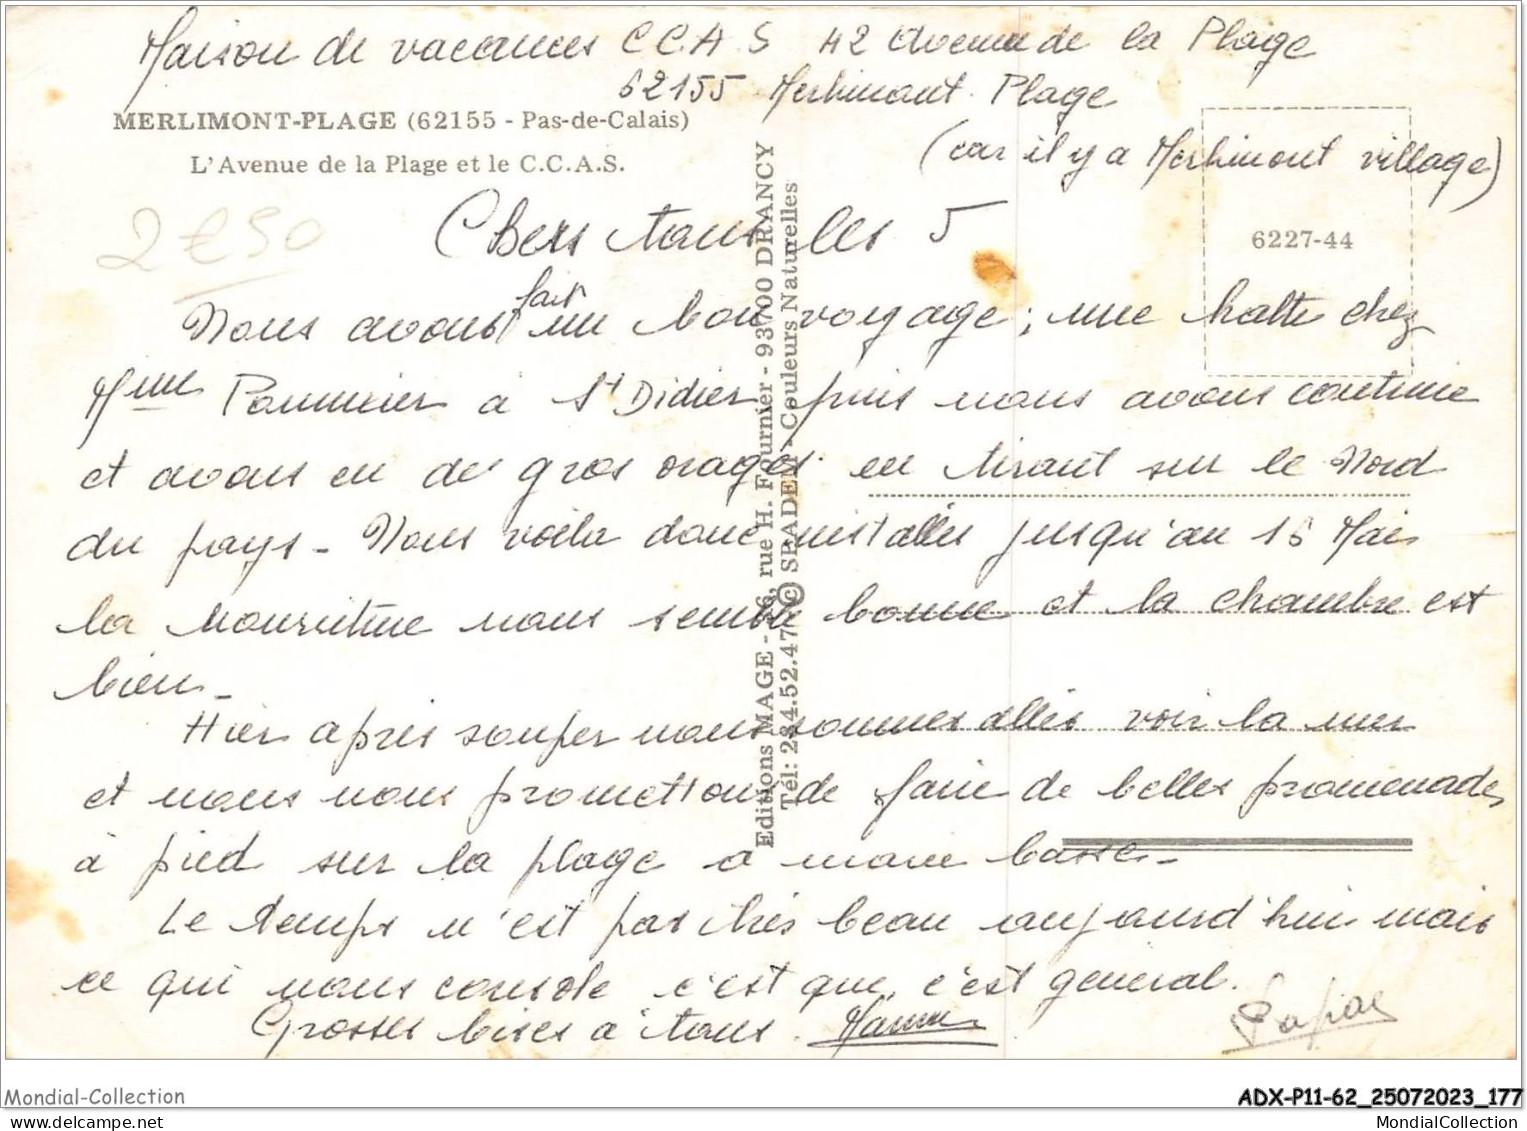 Maison de vacances C C A S 42 Avenue de la Plage
62155 Merlimont Plage
(car il y a Merlimont village)
MERLIMONT-PLAGE (62155 - Pas-de-Calais)
L'Avenue de la Plage et le C.C.A.S.
2€50
6227-44
Chers tous les 5
Nous avons fait un bon voyage ; une halte chez
Mme Pommier à St Didier puis nous avons continué
et avons eu de gros orages en tirant sur le Nord
du pays - Nous voilà donc installés jusqu'au 16 Mai
la nourriture nous semble bonne et la chambre est
bien -
Hier après souper nous sommes allés voir la mer
et nous nous promettons de faire de belles promenades
à pied sur la plage à marée basse -
Le temps n'est pas très beau aujourd'hui mais
ce qui nous console c'est que c'est général.
Grosses bises à tous. Mamie
Papiac
Editions MAGE - 16, rue H. Fournier - 93700 DRANCY
Tél: 284.52.47 © SPADEM - Couleurs Naturelles
Mondial-Collection
ADX-P11-62_25072023_177
MondialCollection